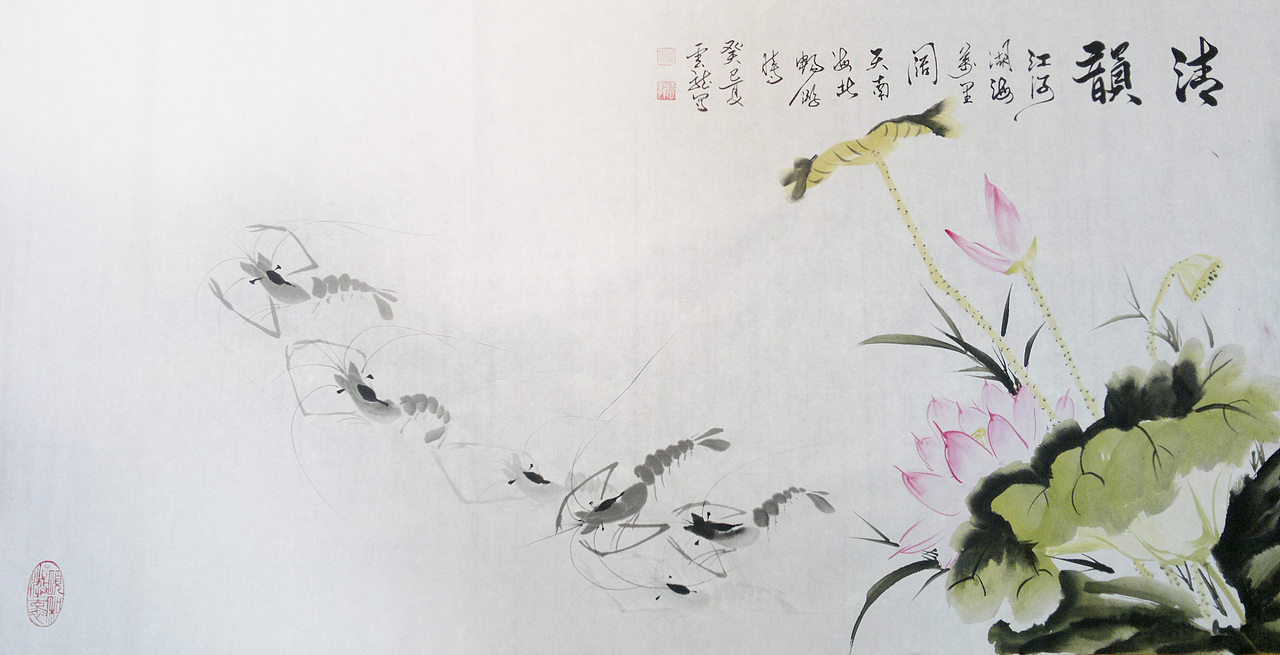 清韻
江河
湖海
萬里
闊
天南
海北
暢游
騰
癸巳夏
雲龍写